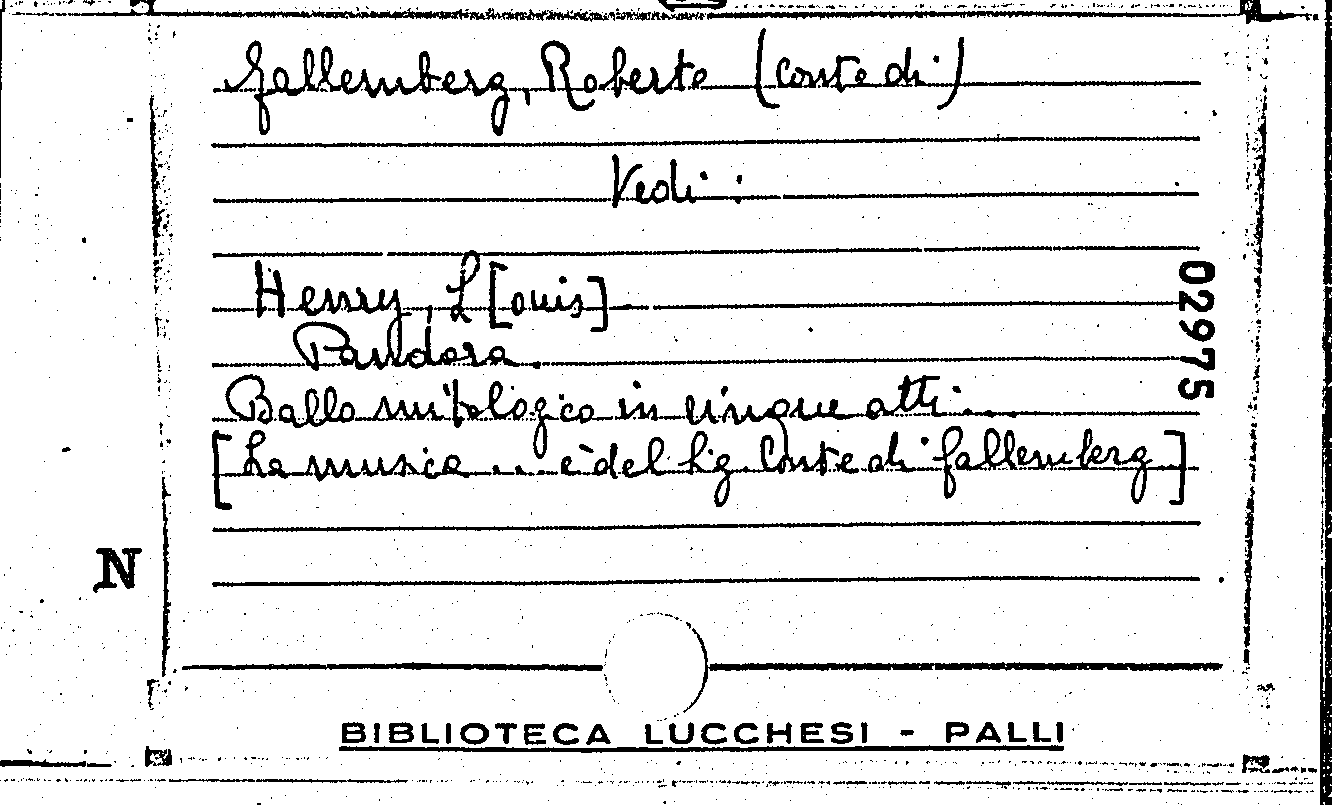 Fallemberg, Roberto (conte di)
Vedi:
Henry, L[ouis]
Pandora.
Ballo mitologico in cinque atti...
[La musica ... è del Sig. Conte di Fallemberg]
02975
N
BIBLIOTECA LUCCHESI - PALLI